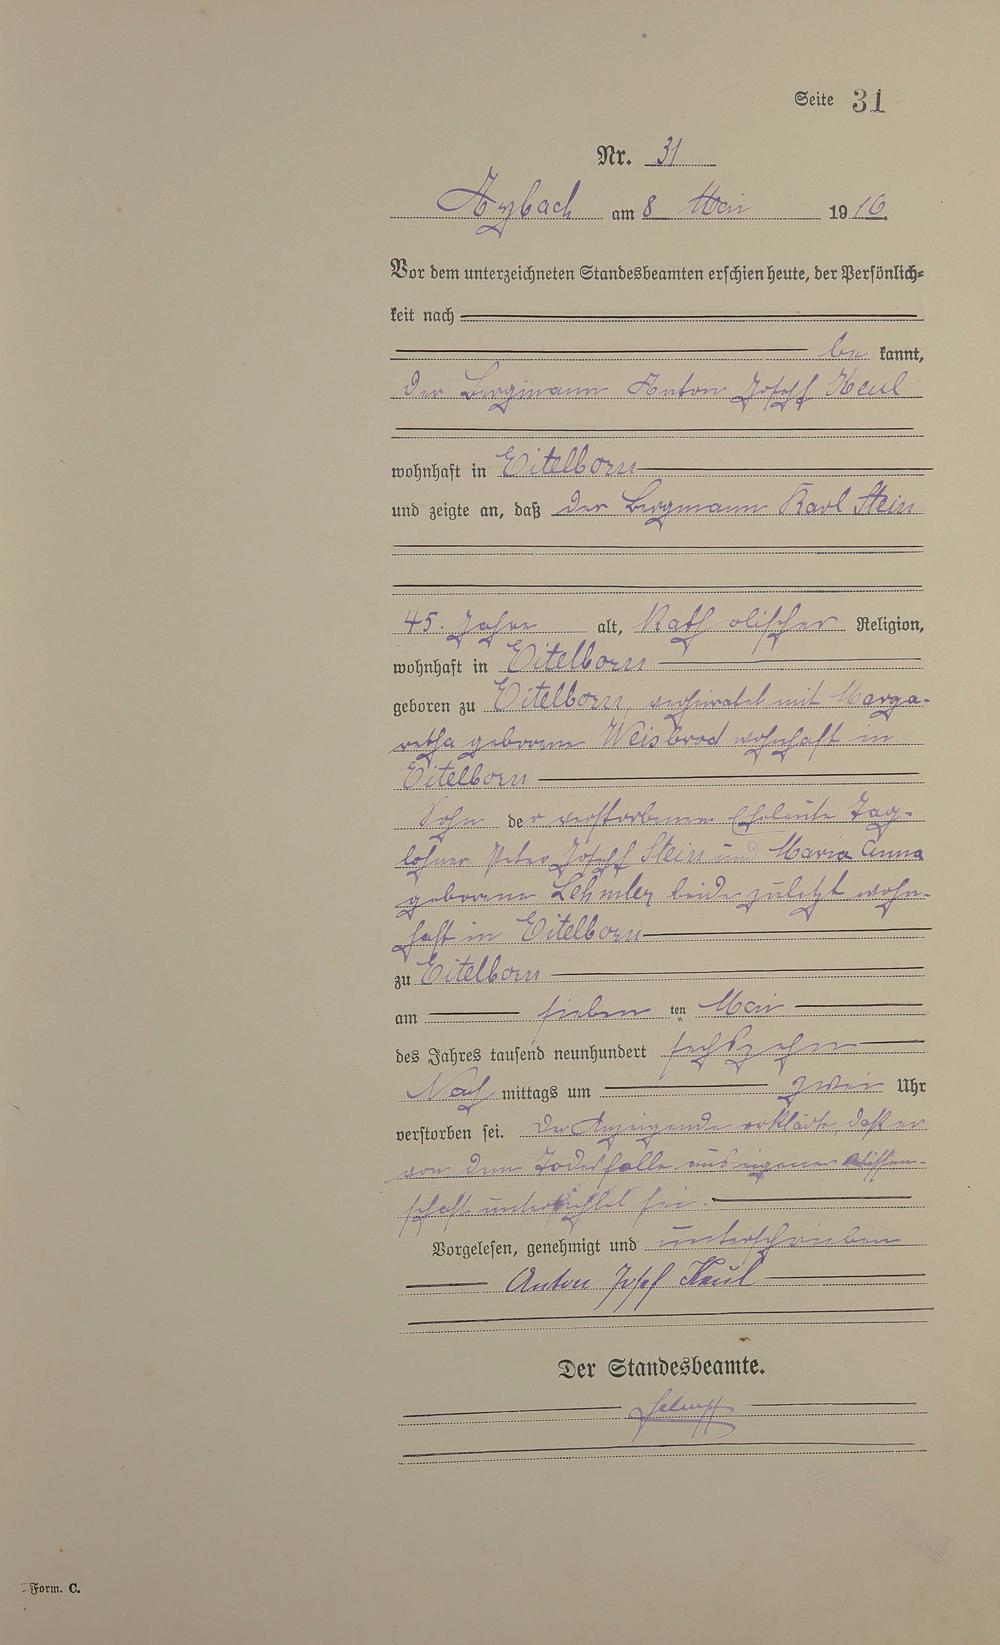 Seite 31
Nr. 31
Arzbach am 8 Mai 1916.
Vor dem unterzeichneten Standesbeamten erschien heute, der Persönlich-
keit nach
be kannt,
der Bergmann Anton Joseph Keul
wohnhaft in Eitelborn
und zeigte an, daß der Bergmann Karl Stein
45. Jahre alt, Katholischer Religion,
wohnhaft in Eitelborn
geboren zu Eitelborn verheiratet mit Marga-
retha geborene Weisbrod wohnhaft in
Eitelborn
Sohn der verstorbenen Eheleute Tag-
löhner Peter Joseph Stein und Maria Anna
geborene Lehmler beide zuletzt wohn-
haft in Eitelborn
zu Eitelborn
am sieben ten Mai
des Jahres tausend neunhundert sechszehn
Nach mittags um zwei Uhr
verstorben sei. Der Anzeigende erklärte, daß er
von dem Todesfalle aus eigener Wissen-
schaft unterrichtet sei.
Vorgelesen, genehmigt und unterschrieben
Anton Josef Keul
Der Standesbeamte.
Form. C.